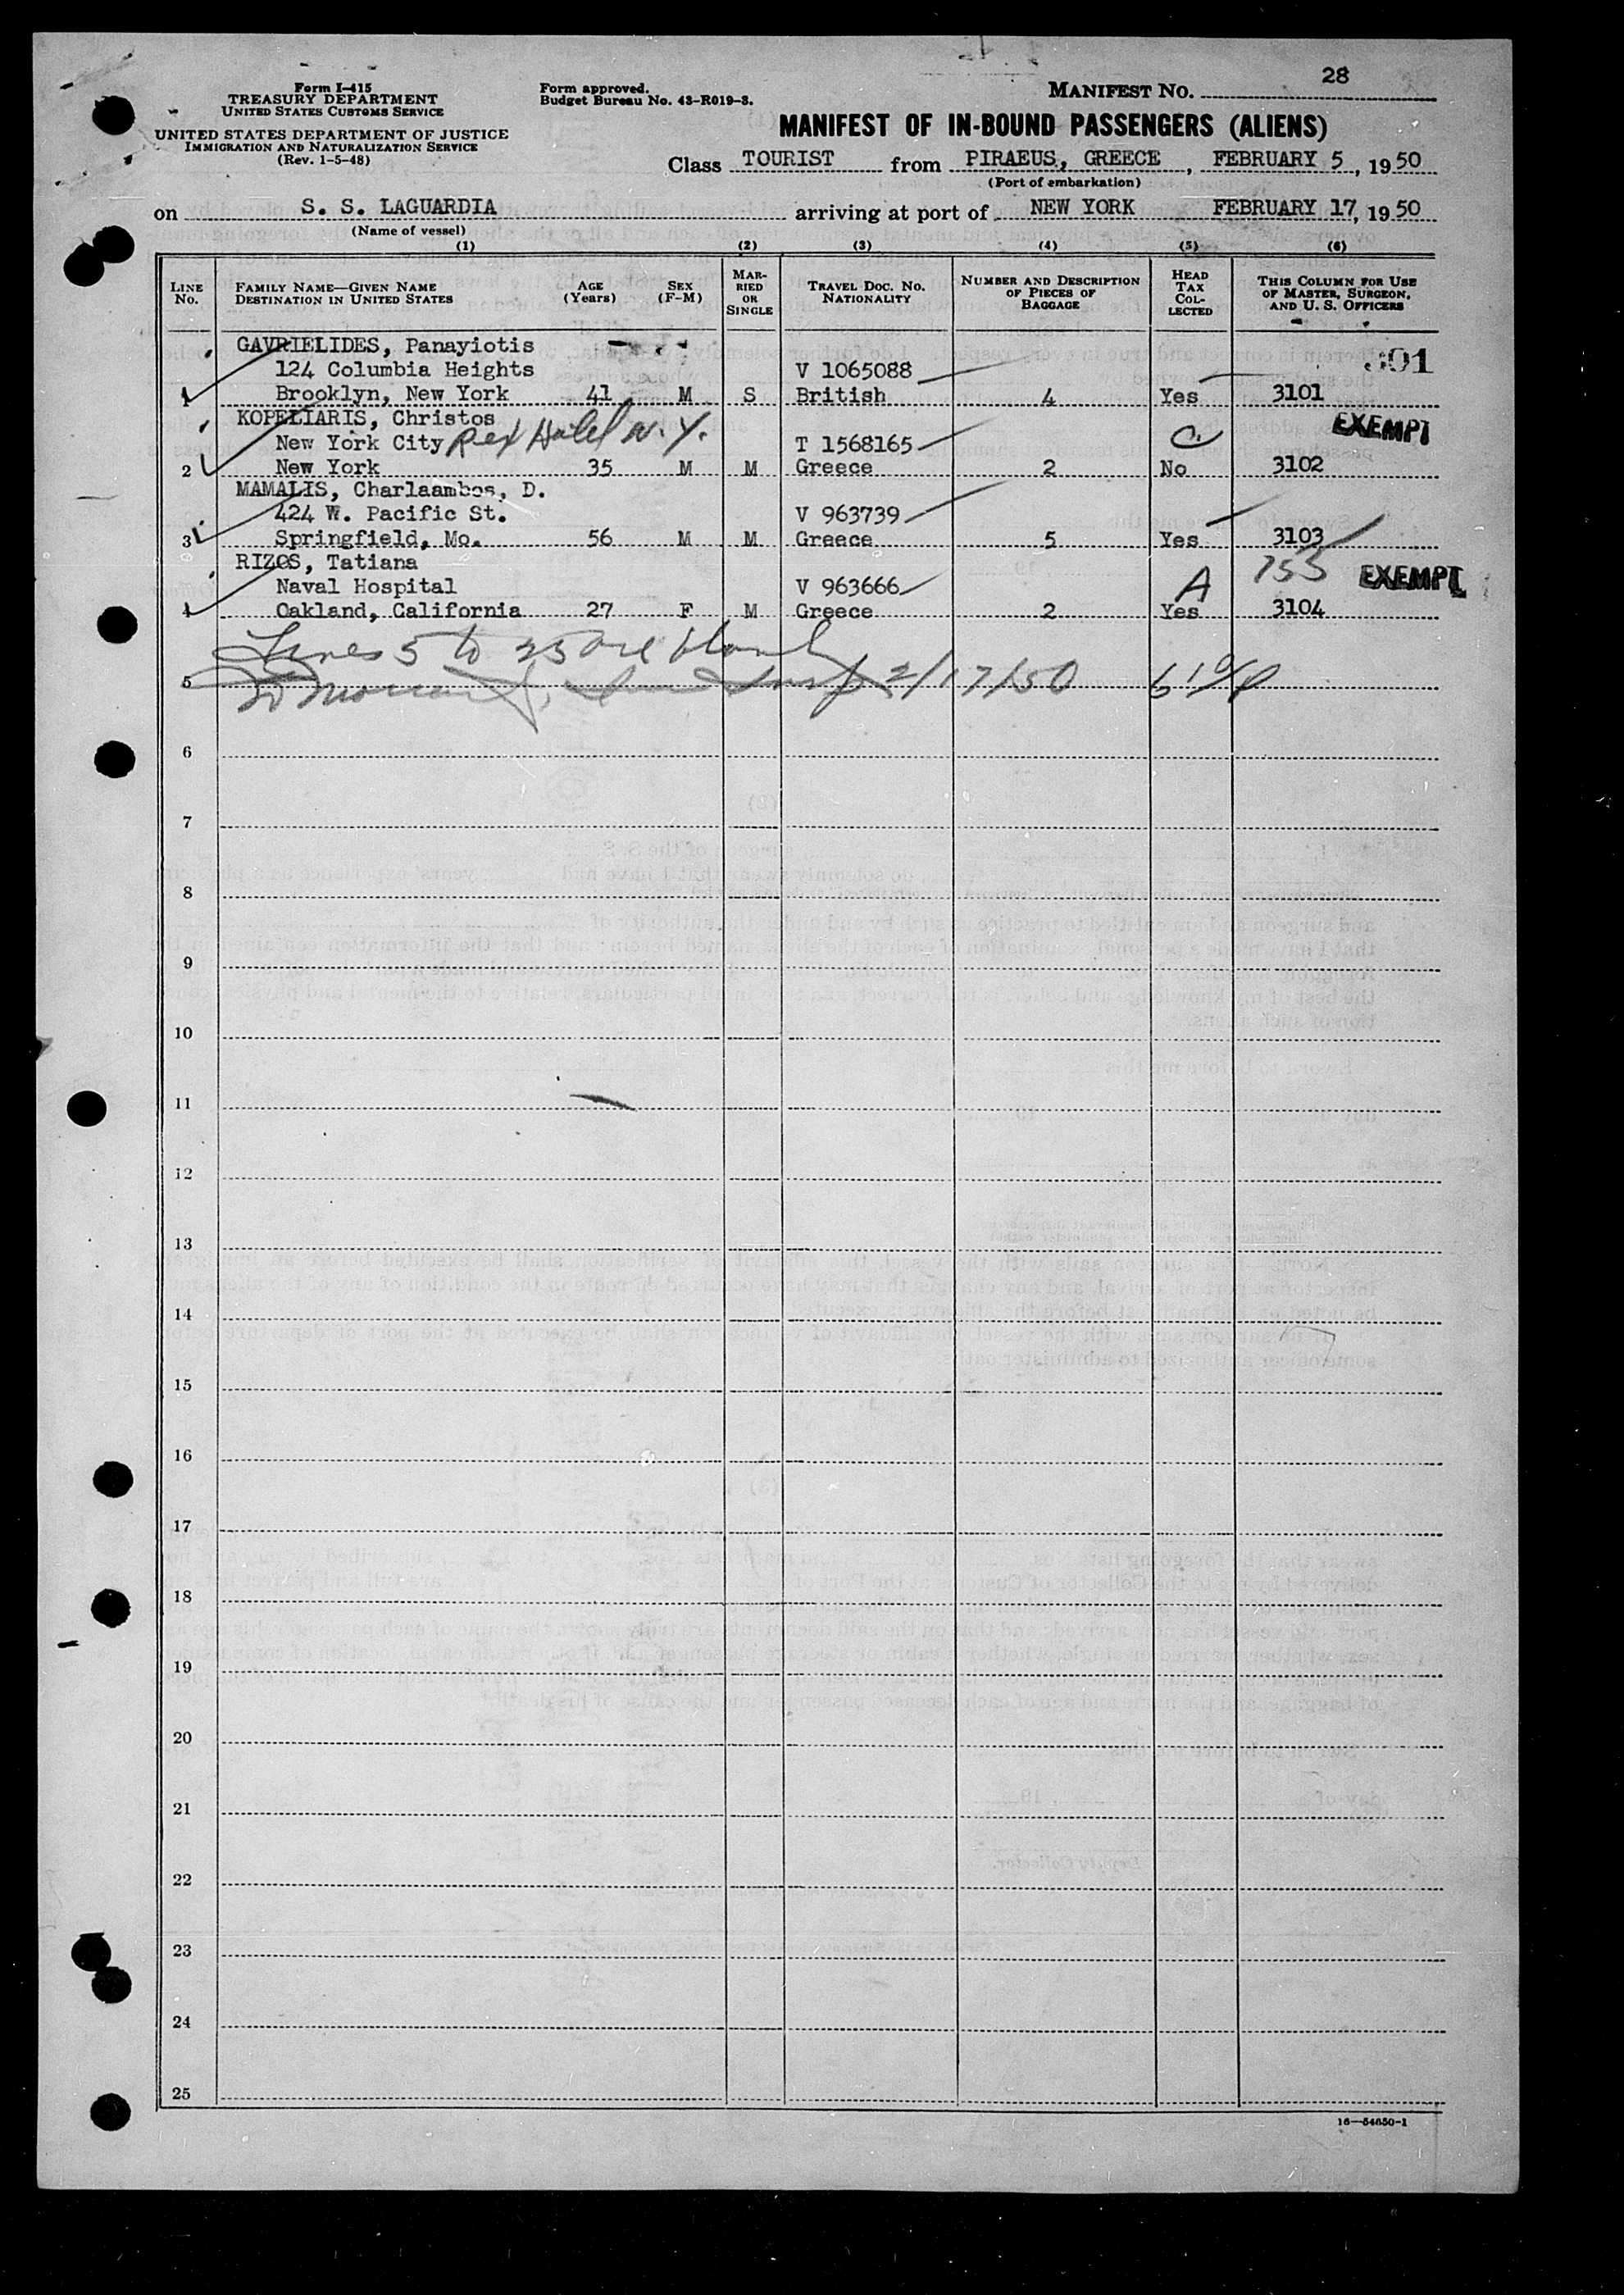 28
Form I-415
TREASURY DEPARTMENT
UNITED STATES CUSTOMS SERVICE
UNITED STATES DEPARTMENT OF JUSTICE
IMMIGRATION AND NATURALIZATION SERVICE
(Rev. 1-5-48)
Form approved.
Budget Bureau No. 43-R019-3.
MANIFEST No.
MANIFEST OF IN-BOUND PASSENGERS (ALIENS)
Class TOURIST from PIRAEUS, GREECE, FEBRUARY 5, 1950
(Port of embarkation)
on S. S. LAGUARDIA arriving at port of NEW YORK FEBRUARY 17, 1950
(Name of vessel)
(1) (2) (3) (4) (5) (6)
LINE No. FAMILY NAME—GIVEN NAME DESTINATION IN UNITED STATES AGE (Years) SEX (F-M) MARRIED OR SINGLE TRAVEL DOC. NO. NATIONALITY NUMBER AND DESCRIPTION OF PIECES OF BAGGAGE HEAD TAX COLLECTED THIS COLUMN FOR USE OF MASTER, SURGEON, AND U. S. OFFICERS
GAVRIELIDES, Panayiotis
124 Columbia Heights V 1065088 301
1 Brooklyn, New York 41 M S British 4 Yes 3101
KOPELIARIS, Christos EXEMPT
New York City Rex Hotel N.Y. T 1568165 C.
2 New York 35 M M Greece 2 No 3102
MAMALIS, Charlaambos, D.
424 W. Pacific St. V 963739
3 Springfield, Mo. 56 M M Greece 5 Yes 3103
RIZOS, Tatiana 755 EXEMPT
Naval Hospital V 963666 A
4 Oakland, California 27 F M Greece 2 Yes 3104
Lines 5 to 25 are blank
5 2/17/50
6
7
8
9
10
11
12
13
14
15
16
17
18
19
20
21
22
23
24
25
16—54650-1